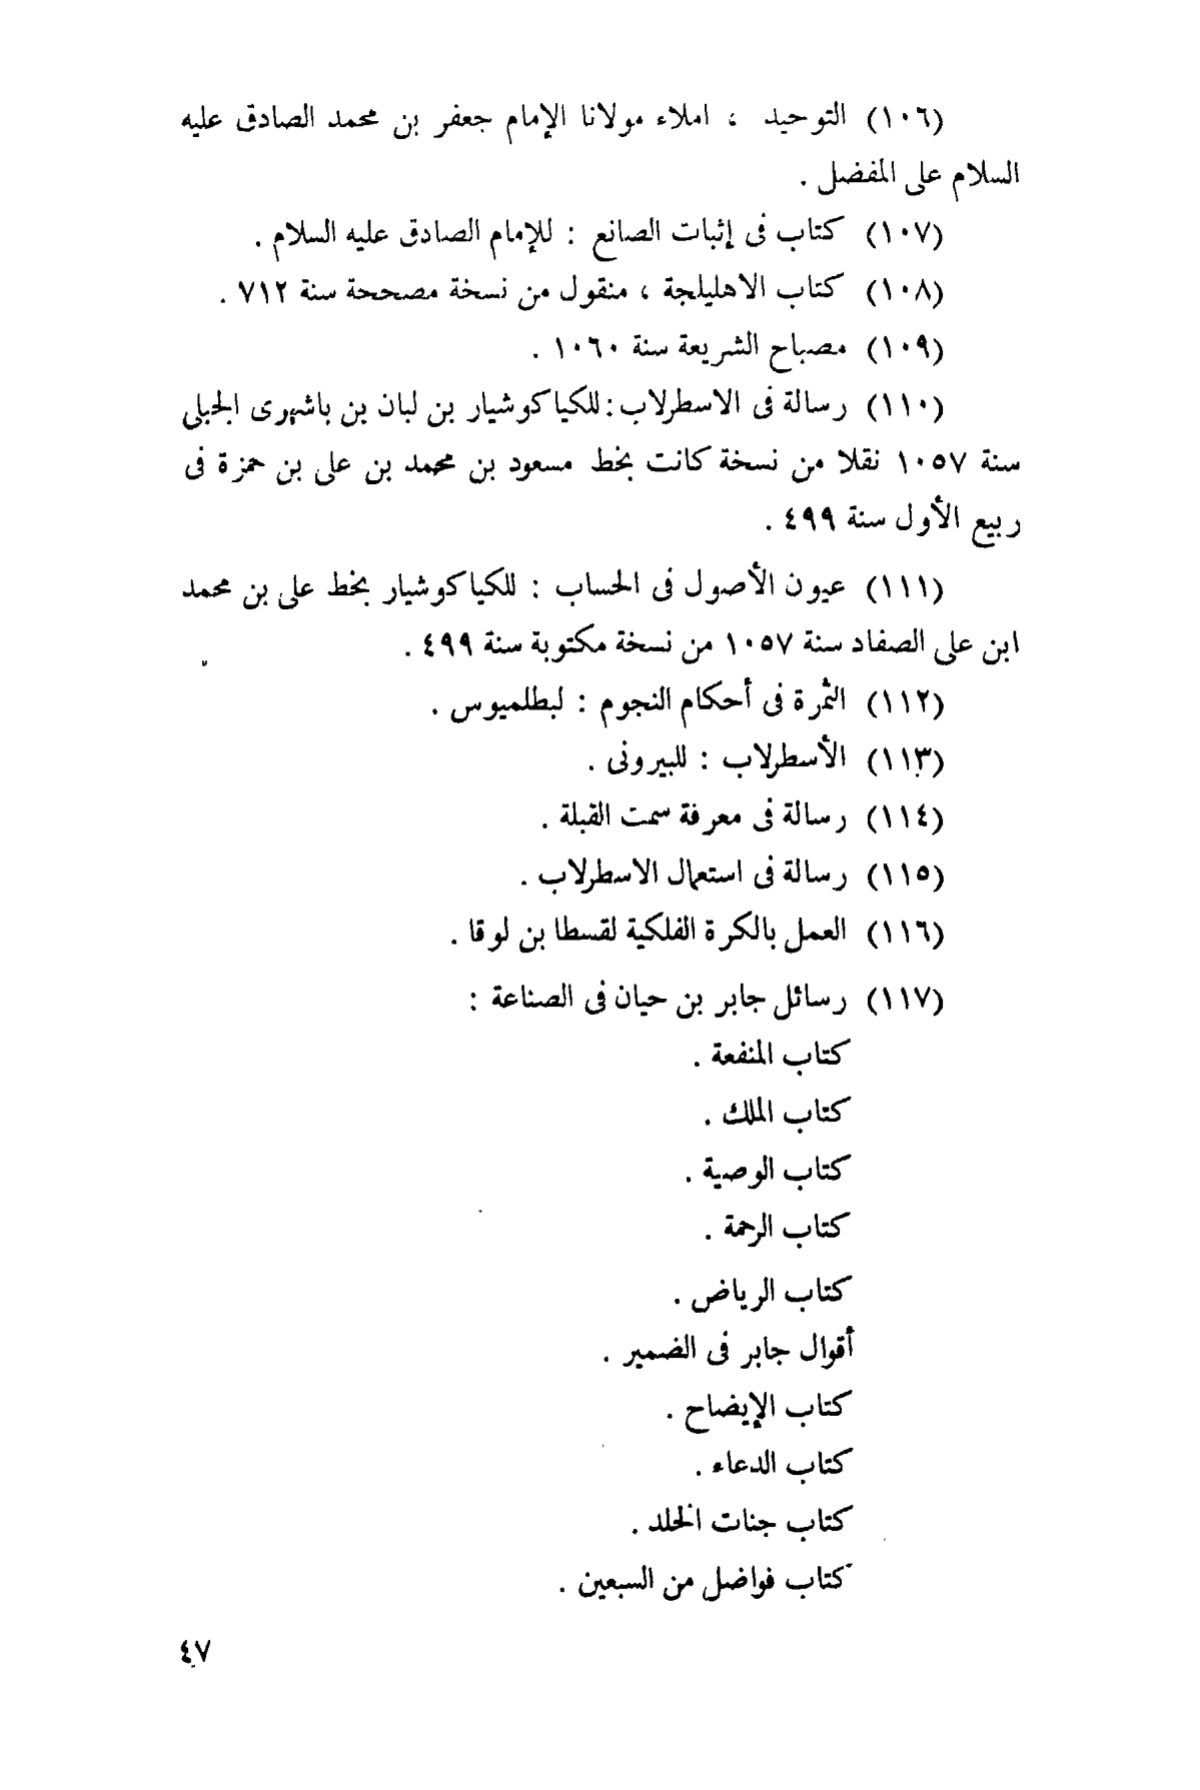 (١٠٦) التوحيد ، املاء مولانا الإمام جعفر بن محمد الصادق عليه
السلام على المفضل .
(١٠٧) كتاب فى إثبات الصانع : للإمام الصادق عليه السلام .
(١٠٨) كتاب الاهليلجة ، منقول من نسخة مصححة سنة ٧١٢ .
(١٠٩) مصباح الشريعة سنة ١٠٦٠ .
(١١٠) رسالة فى الاسطرلاب : للكيا كوشيار بن لبان بن باشهرى الجبلى
سنة ١٠٥٧ نقلا من نسخة كانت بخط مسعود بن محمد بن على بن حمزة فى
ربيع الأول سنة ٤٩٩ .
(١١١) عيون الأصول فى الحساب : للكيا كوشيار بخط على بن محمد
ابن على الصفاد سنة ١٠٥٧ من نسخة مكتوبة سنة ٤٩٩ .
(١١٢) الثمرة فى أحكام النجوم : لبطلميوس .
(١١٣) الأسطرلاب : للبيرونى .
(١١٤) رسالة فى معرفة سمت القبلة .
(١١٥) رسالة فى استعمال الاسطرلاب .
(١١٦) العمل بالكرة الفلكية لقسطا بن لوقا .
(١١٧) رسائل جابر بن حيان فى الصناعة :
كتاب المنفعة .
كتاب الملك .
كتاب الوصية .
كتاب الرحمة .
كتاب الرياض .
أقوال جابر فى الضمير .
كتاب الإيضاح .
كتاب الدعاء .
كتاب جنات الخلد .
كتاب فواضل من السبعين .
٤٧